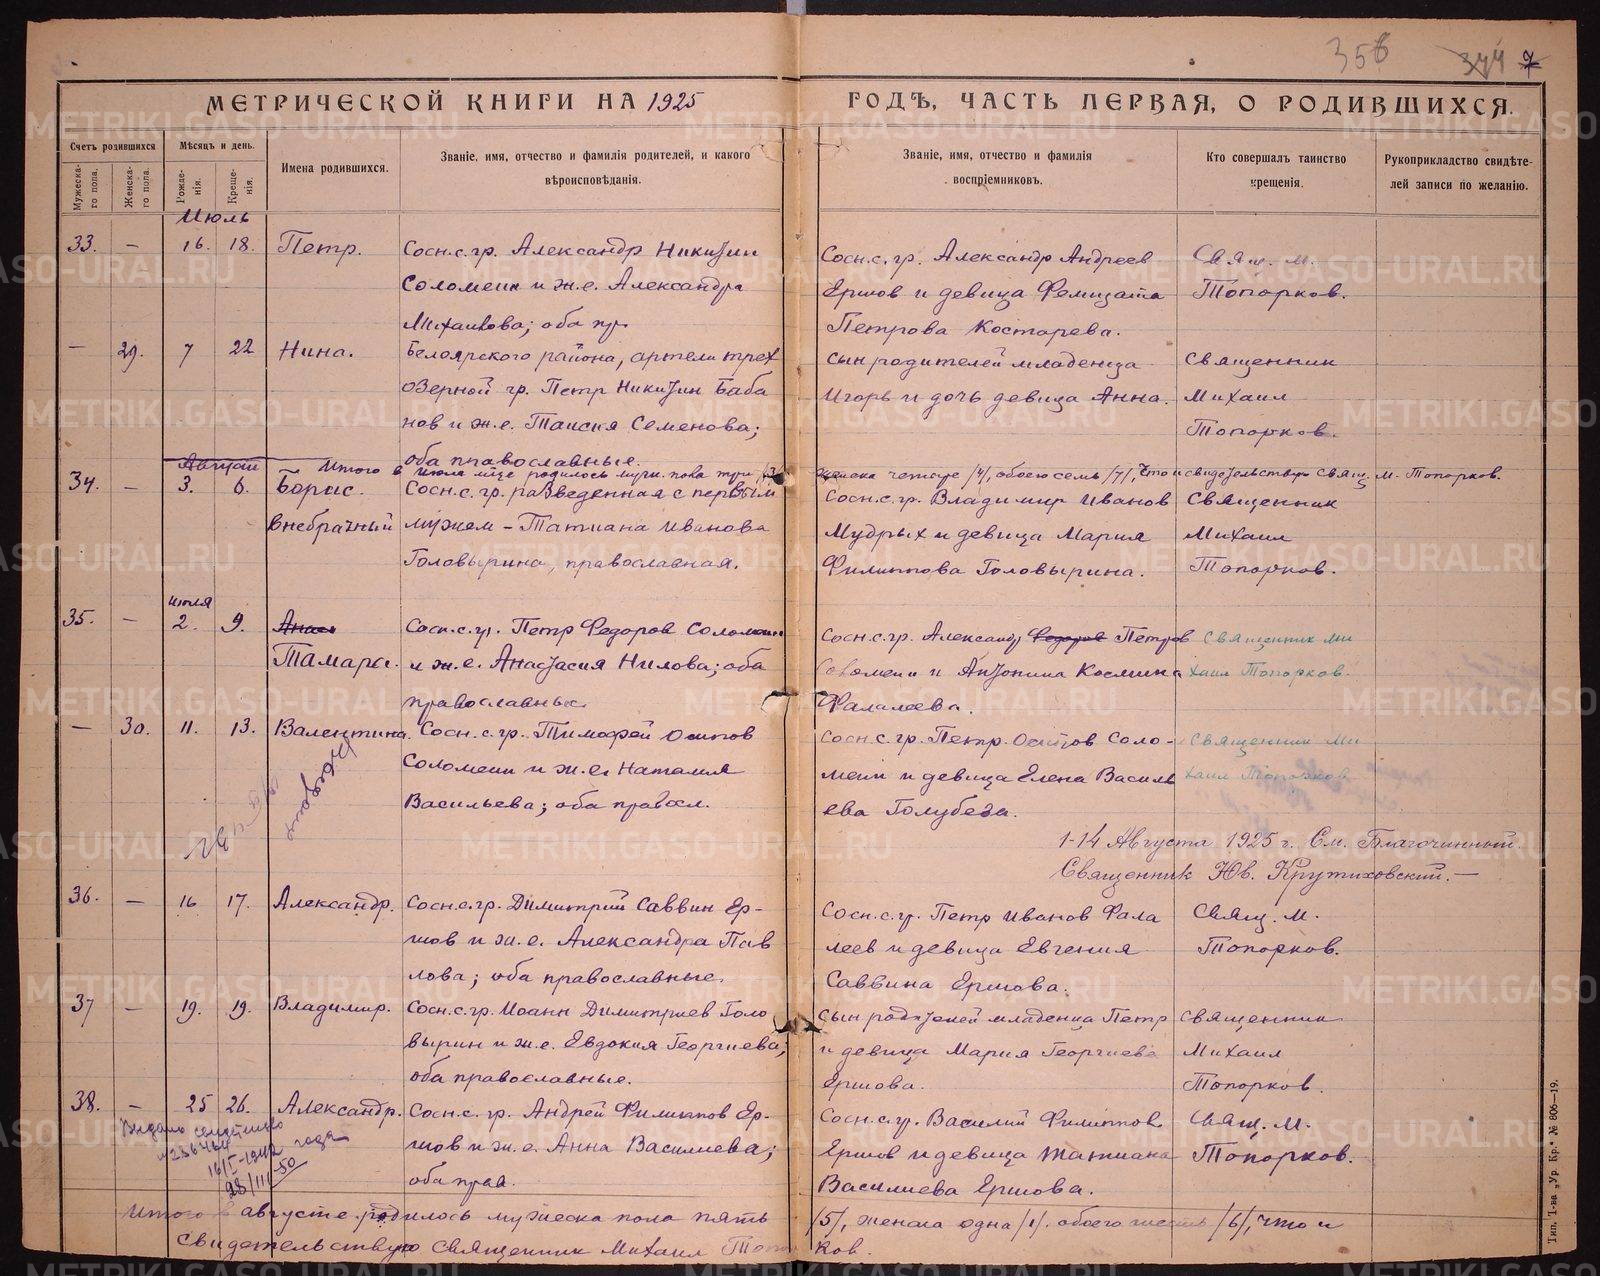 356 374 7
МЕТРИЧЕСКОЙ КНИГИ НА 1925 ГОДѢ, ЧАСТЬ ПЕРВАЯ, О РОДИВШИХСЯ.
Счетъ родившихся
Мужеска-го пола.
Женска-го пола.
Мѣсяцъ и день.
Рожде-нія.
Креще-нія.
Имена родившихся.
Званіе, имя, отчество и фамилія родителей, и какого
вѣроисповѣданія.
Званіе, имя, отчество и фамилія
воспріемниковъ.
Кто совершалъ таинство
крещенія.
Рукоприкладство свидѣте-
лей записи по желанію.
Июль
33. — 16. 18. Петр.
Сосн.с.гр. Александр Никитин
Соломеин и ж.е. Александра
Михаилова; оба пр.
Сосн.с.гр. Александр Андреев
Ершов и девица Фемицата
Петрова Костарева.
Свящ. М.
Топорков.
— 29. 7 22 Нина.
Белоярского района, артели трех
озерной гр. Петр Никитин Баба
нов и ж.е. Таисия Семенова;
оба православные.
сын родителей младенца
Игорь и дочь девица Анна.
Священник
Михаил
Топорков.
Итого в июле м-це родилось муж. пола три /3/ женска четыре /4/, обоего семь /7/, что и свидетельствую свящ. М. Топорков.
Август
34. — 3. 6. Борис.
внебрачный
Сосн.с.гр. разведенная с первым
мужем – Татиана Иванова
Головырина, православная.
Сосн.с.гр. Владимир Иванов
Мудрых и девица Мария
Филиппова Головырина.
Священник
Михаил
Топорков.
июля
35. — 2. 9.
Тамары.
Сосн.с.гр. Петр Федоров Соломеин
и ж.е. Анастасия Нилова; оба
православные.
Сосн.с.гр. Александр Федоров Петров
Соломеин и Антонина Косьмина
Фалалеева.
Священник Ми
хаил Топорков.
— 30. 11. 13. Валентина.
Сосн.с.гр. Тимофей Осипов
Соломеин и ж.е. Наталия
Васильева; оба правосл.
Сосн.с.гр. Петр Осипов Соло-
меин и девица Елена Василь
ева Голубева.
Священник Ми
хаил Топорков
1-14 Августа 1925 г. См. Благочинный
Священник Юв. Крутиховский. —
36. — 16 17. Александр.
Сосн.с.гр. Димитрий Саввин Ер-
шов и ж.е. Александра Пав
лова; оба православные.
Сосн.с.гр. Петр Иванов Фала
леев и девица Евгения
Саввина Ершова.
Свящ. М.
Топорков.
37 — 19. 19. Владимир.
Сосн.с.гр. Иоанн Димитриев Голо
вырин и ж.е. Евдокия Георгиева;
оба православные.
сын родителей младенца Петр
и девица Мария Георгиева
Ершова.
Священник
Михаил
Топорков.
38. — 25 26. Александр.
Сосн.с.гр. Андрей Филиппов Ер-
шов и ж.е. Анна Василиева;
оба прав.
Сосн.с.гр. Василий Филиппов
Ершов и девица Татиана
Василиева Ершова.
Свящ. М.
Топорков.
года
28/III-50
Итого в августе родилось мужеска пола пять /5/, женска одна /1/, обоего шесть /6/, что и
свидетельствую священник Михаил Топорков.
Тип. Т-ва „Ур. Кр.“ № 806–19.
METRIKI.GASO-URAL.RU